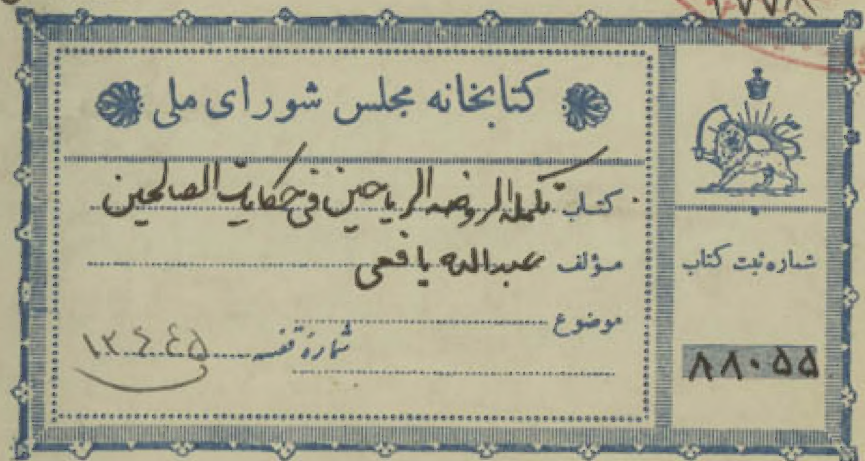 کتابخانه مجلس شورای ملی
کتاب تکمله الروضه الریاحین فی حکایات الصالحین
مؤلف عبدالله یافعی
موضوع
شمارهٔ قفسه ۱۳۴۴۵
شماره ثبت کتاب
۸۸۰۵۵